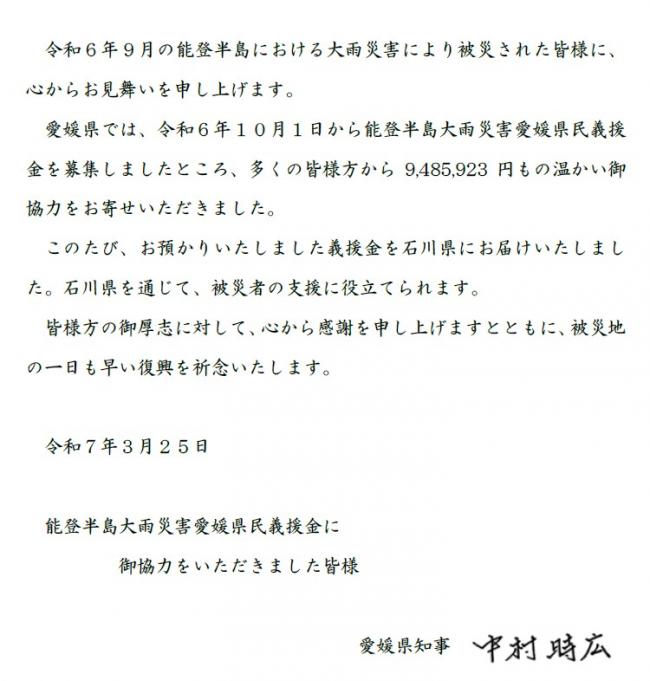 令和６年９月の能登半島における大雨災害により被災された皆様に、
心からお見舞いを申し上げます。
愛媛県では、令和６年１０月１日から能登半島大雨災害愛媛県民義援
金を募集しましたところ、多くの皆様方から 9,485,923 円もの温かい御
協力をお寄せいただきました。
このたび、お預かりいたしました義援金を石川県にお届けいたしまし
た。石川県を通じて、被災者の支援に役立てられます。
皆様方の御厚志に対して、心から感謝を申し上げますとともに、被災地
の一日も早い復興を祈念いたします。
令和７年３月２５日
能登半島大雨災害愛媛県民義援金に
御協力をいただきました皆様
愛媛県知事 中村時広